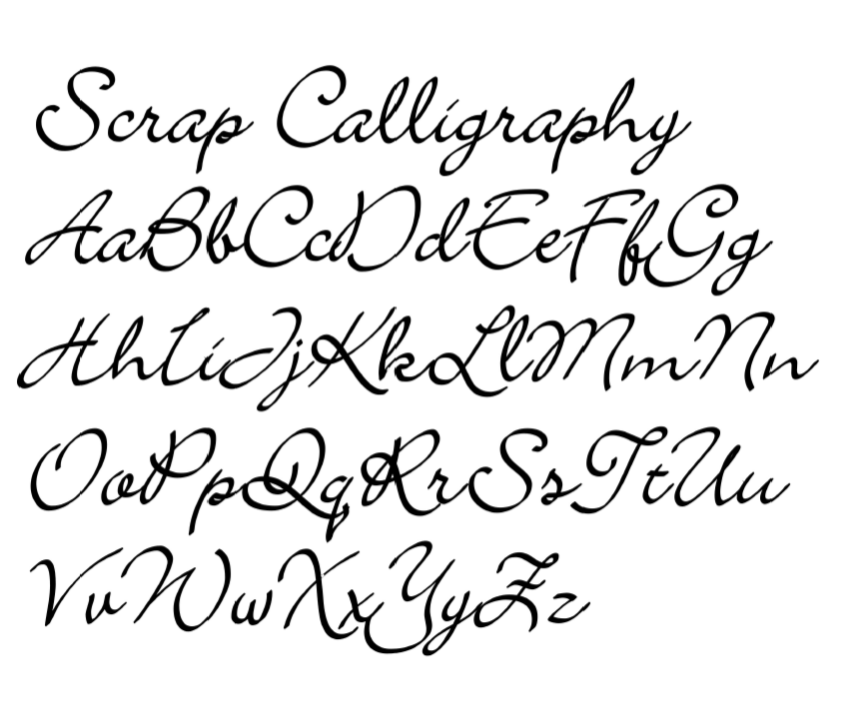 Scrap Calligraphy
AaBbCcDdEeFfGg
HhIiJjKkLlMmNn
OoPpQqRrSsTtUu
VvWwXxYyZz